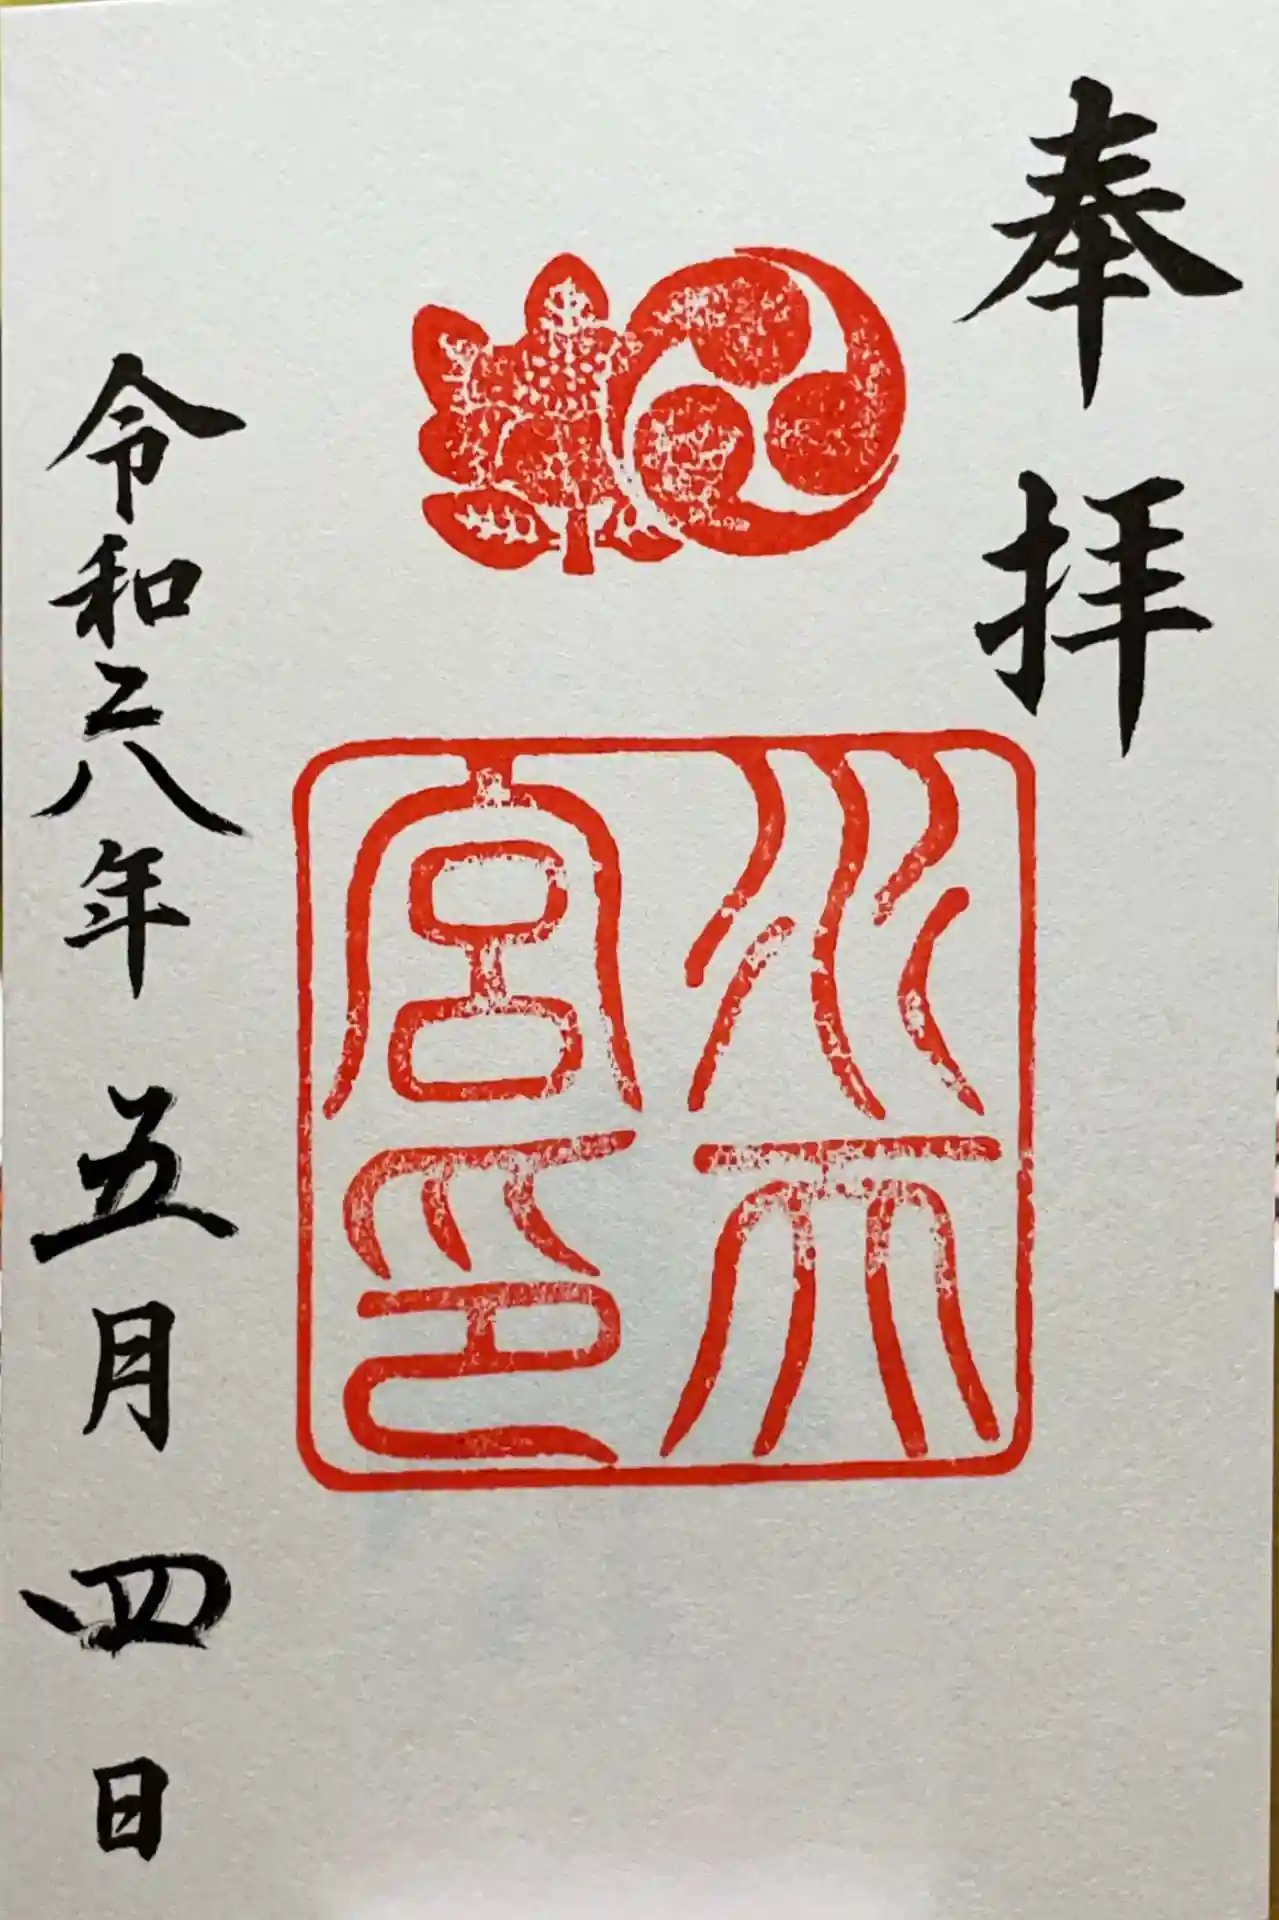 奉拝
水天宮印
令和二八年五月四日